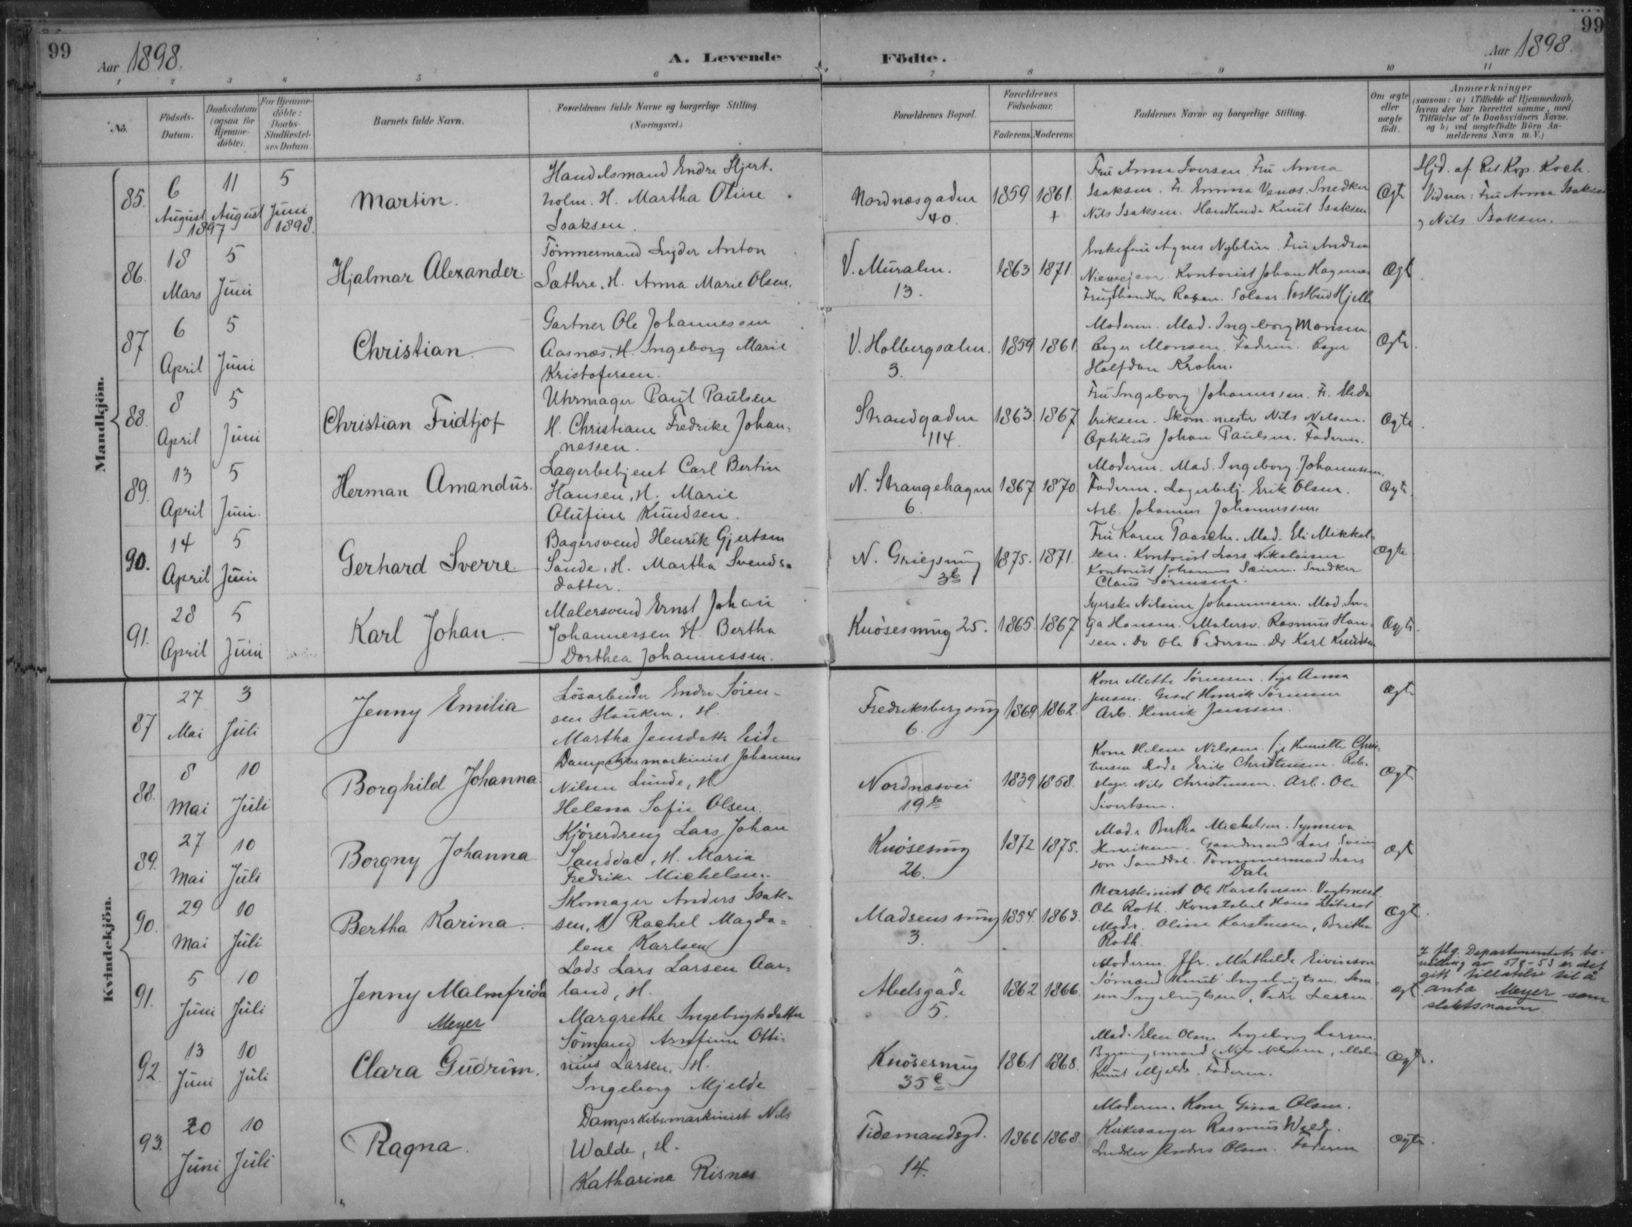 99
Aar 1898.
A. Levende
Fødte.
Aar 1898.
99
1 2 3 4 5 6 7 8 9 10 11
No.
Fødsels-
Datum.
Daabsdatum
(ogsaa for
Hjemme-
døbte).
For Hjemme-
døbte:
Daabs-
Stadfæstel-
ses Datum
Barnets fulde Navn.
Forældrenes fulde Navne og borgerlige Stilling
(Næringsvei.)
Forældrenes Bopæl.
Forældrenes
Fødselsaar.
Faderens. Moderens.
Faddernes Navne og borgerlige Stilling.
Om ægte
eller
uægte
født.
Anmærkninger
(saasom: a) i Tilfælde af Hjemmedaab,
hvem der har forrettet samme, med
Tilføielse af to Daabsvidners Navne,
og b) ved uægtefødte Børn An-
melderens Navn m. V.)
Mandkjøn.
85.
6
August
1897
11
August
5
Juni
1898.
Martin.
Handelsmand Endre Hjert-
holm. H. Martha Oline
Isaksen.
Nordnæsgaden
40.
1859 1861
+
Fru Anna Iversen. Fru Anna
Isaksen. Fr. Emma Snedker
Nils Isaksen. Knut Isaksen
Ægt
Hjd. af Res. Kap. Koch.
Vidner: Fru Anna Isaksen
, Nils Isaksen.
86.
18
Mars
5
Juni
Hjalmar Alexander
Tømmermand Lyder Anton
Sæthre, H. Anna Marie Olsen.
V. Muralm.
13.
1863 1871
Enkefru Agnes Nyblin. Fru Andrea
Kontorist Johan Hagenæs
Ægt.
87
6
April
5
Juni
Christian
Gartner Ole Johannessen
Aasnæs, H. Ingeborg Marie
Kristofersen.
V. Holbergsalm.
3.
1859 1861
Moderen. Mad. Ingeborg Monsen
Monsen. Faderen.
Halfdan Krohn.
Ægte.
88.
8
April
5
Juni
Christian Fridtjof
Uhrmager Paul Paulsen
H. Christiane Fredrike Johan-
nessen.
Strandgaden
114.
1863. 1867
Fru Ingeborg Johannessen.
Skom.mester Nils Nilsen.
Optikus Johan Paulsen. Faderen.
Ægte.
89.
13
April
5
Juni.
Herman Amandus.
Lagerbetjent Carl Bertin
Hansen, H. Marie
Olufine Knudsen.
N. Strangehagen
6.
1867 1870
Moderen. Mad. Ingeborg Johannessen.
Faderen. Lagerbetj. Erik Olsen.
Arb. Johannes Johannessen
Ægte.
90.
14
April
5
Juni
Gerhard Sverre
Bagersvend Henrik Gjertsen
Sande, H. Martha Svends-
datter.
N. Griegsmug
3b
1875. 1871.
Fru Karen Paasche. Mad. Eli Mikkel-
sen. Kontorist Lars Nikolaisen
Kontorist Johannes Snedker
Claus Sørensen.
Ægte
91.
28
April
5
Juni
Karl Johan
Malersvend Ernst Johan
Johannessen H. Bertha
Dorthea Johannessen.
Knøsesmug 25.
1865. 1867
Syerske Nilsine Johannesen. Mad. In-
ga Hansen. Malersv. Rasmus Han-
sen. Do Ole Pedersen. Do Karl Knudsen
Ægte.
Kvindekjøn.
87
27
Mai
3
Juli
Jenny Emilia
Løsarbeider Endre Søren-
sen Hauken, H.
Martha Jensdatter Eide
Fredriksbergsmug
6.
1869 1862.
Kone Mette Sørensen. Pige Anna
Jensen. Henrik Sørensen
Arb. Henrik Jenssen.
Ægte
88.
8
Mai
10
Juli
Borghild Johanna
Dampskibsmaskinist Johannes
Nilsen Lunde, H.
Helena Sofie Olsen.
Nordnæsvei
19b
1839 1858.
Kone Helene Nilsen. Chris-
tensen Lods Erik Christensen.
Nils Christensen. Arb. Ole
Sivertsen.
Ægt
89.
27
Mai
10
Juli
Borgny Johanna
Kjøredreng Lars Johan
Sanddal, H. Maria
Fredrike Michelsen.
Knøsesmug
26.
1872 1875.
Mad. Bertha Michelsen. Synneva
Henriksen. Gaardmand Lars Svend-
sen Sanddal. Tømmermand Lars
Dale
Ægt
90.
29
Mai
10
Juli
Bertha Karina.
Skomager Anders Isak-
sen, H. Rachel Magda-
lene Karlsen
Madsens smug
3.
1854. 1863.
Maskinist Ole Karstensen.
Ole Roth. Konstabel Hans
Mads. Oline Karstensen, Britha
Roth.
Ægt.
91.
5
Juni
10
Juli
Jenny Malmfrida
Meyer
Lods Lars Larsen Aar-
land, H.
Margrethe Ingebrigtsdatter
Abelsgade
5.
1862 1866.
Moderen. Jfr. Mathilde Eivinson
Sømand Knut Ingebrigtsen.
Ingebrigtsen, Larsen.
Ægt.
I flg. Departementets be-
villing av 5/9-53 er det
gitt tillatelse til å
anta Meyer som
slektsnavn
92.
13
Juni
10
Juli
Clara Gudrun.
Sømand Arnfinn Otti-
nius Larsen, H.
Ingeborg Mjelde
Knøsesmug
35c
1861 1868.
Mad. Elen Olsen. Ingeborg Larsen.
Nils Nilsen, Maler
Knut Mjelde. Faderen.
Ægte.
93.
20
Juni
10
Juli
Ragna.
Dampskibsmaskinist Nils
Walde, H.
Katharina Risnes
Tidemandsgd.
14.
1866 1868.
Moderen. Kone Gina Olsen.
Kirkesanger Rasmus
Snedker Anders Olsen. Faderen
Ægte.